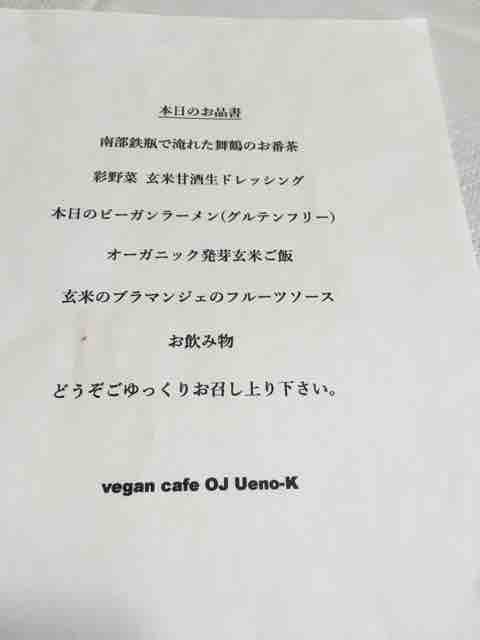 本日のお品書
南部鉄瓶で淹れた舞鶴のお番茶
彩野菜 玄米甘酒生ドレッシング
本日のビーガンラーメン(グルテンフリー)
オーガニック発芽玄米ご飯
玄米のブラマンジェのフルーツソース
お飲み物
どうぞごゆっくりお召し上り下さい。
vegan cafe OJ Ueno-K